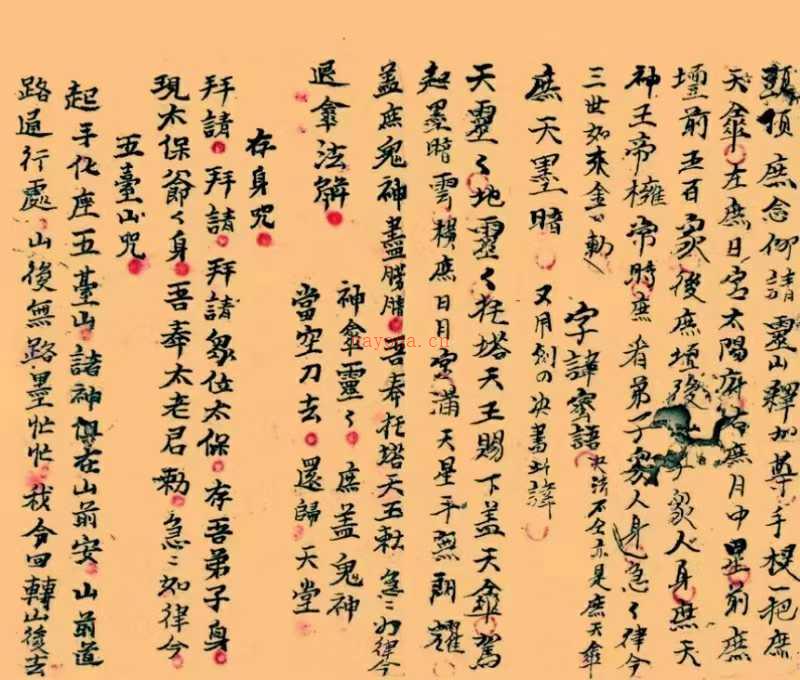 頭頂庶念仰請靈山釋加尊手模一把庶
天傘左庶日宮太陽府右庶月中星前庶
壇前五百眾後庶壇後眾人身庶天
神王帝擁常時庶看弟子眾人身急〻律令
三世如來金口勅
字諱密語 決法不全亦是庶天傘
庶天墨暗 又用劍の決書斗諱
天靈〻地靈〻托塔天王賜下盖天傘駕
起墨暗雲橫庶日月宮滿天星斗無朗耀
盖庶鬼神盡朦朧吾奉托塔天王勅急〻如律令
退傘法解
神傘靈〻庶盖鬼神
當空刀去還歸天堂
存身咒
拜請拜請拜請眾位太保存吾弟子身
現太保爺〻身吾奉太老君勅急〻如律令
五臺山咒
起手化座五臺山諸神俱在山前安山前道
路通行處山後無路墨忙忙我今回轉山後去
nayona.cn